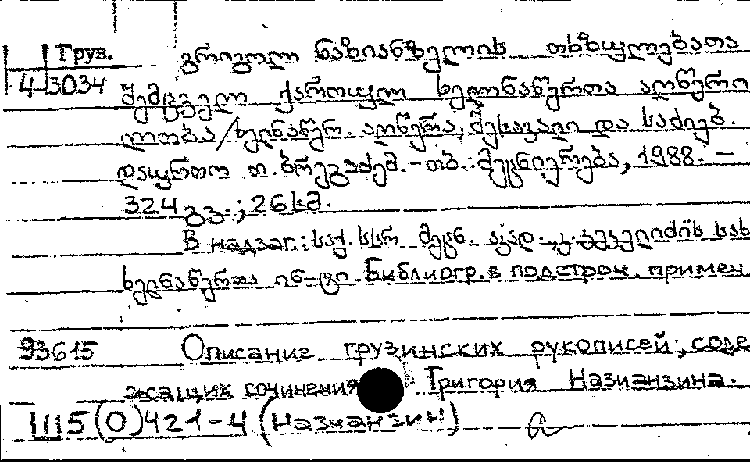 Груз. გრიგოლ ნაზიანზელის თხზულებათა
4-3034 შემცველ ქართულ ხელნაწერთა აღწერი
ლობა / ხელნაწერ. აღწერა, შესავალი და საძიებ.
დაურთო თ. ბრეგაძემ. - თბ.: მეცნიერება, 1988. -
324 გვ.; 26 სმ.
В надзаг.: საქ. სსრ მეცნ. აკად., კ. კეკელიძის სახ
ხელნაწერთა ინ-ტი. Библиогр. в подстроч. примеч
93615 Описание грузинских рукописей, соде
жащих сочинения Григория Назианзина.
1115(0)421-4 (Назианзин)